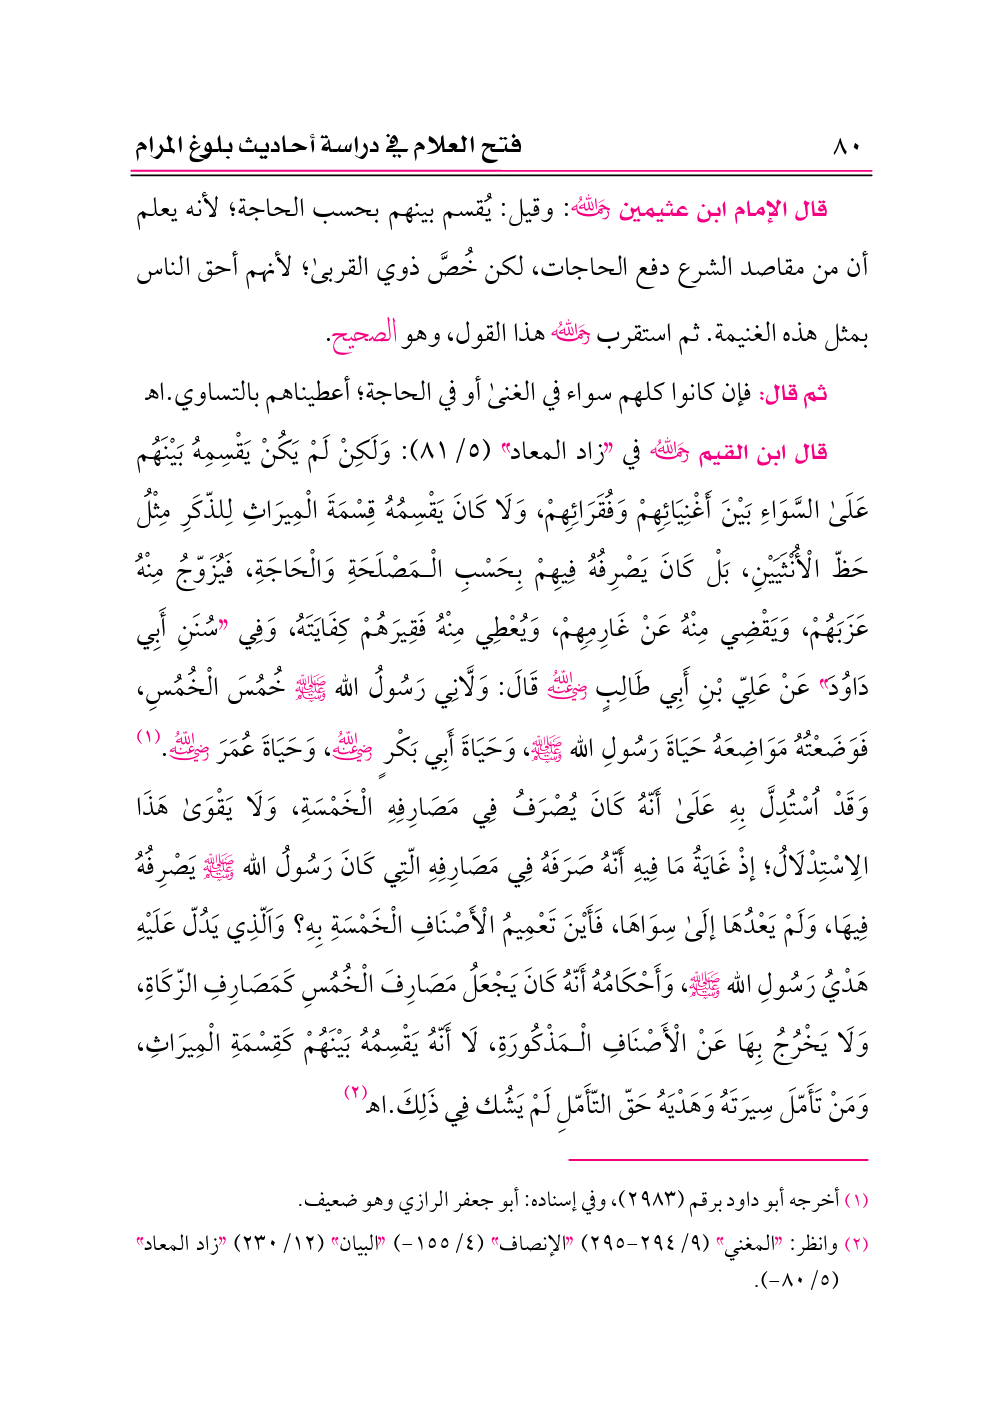 ٨٠ فتح العلام في دراسة أحاديث بلوغ المرام
قال الإمام ابن عثيمين رَحِمَهُ اللَّهُ: وقيل: يُقسم بينهم بحسب الحاجة؛ لأنه يعلم
أن من مقاصد الشرع دفع الحاجات، لكن خُصَّ ذوي القربىٰ؛ لأنهم أحق الناس
بمثل هذه الغنيمة. ثم استقرب رَحِمَهُ اللَّهُ هذا القول، وهو الصحيح.
ثم قال: فإن كانوا كلهم سواء في الغنىٰ أو في الحاجة؛ أعطيناهم بالتساوي.اهـ
قال ابن القيم رَحِمَهُ اللَّهُ في "زاد المعاد" (٥/ ٨١): وَلَكِنْ لَمْ يَكُنْ يَقْسِمِهُ بَيْنَهُم
عَلَىٰ السَّوَاءِ بَيْنَ أَغْنِيَائِهِمْ وَفُقَرَائِهِمْ، وَلَا كَانَ يَقْسِمُهُ قِسْمَةَ الْمِيرَاثِ لِلذّكَرِ مِثْلُ
حَظّ الْأُنْثَيَيْنِ، بَلْ كَانَ يَصْرِفُهُ فِيهِمْ بِحَسْبِ الْـمَصْلَحَةِ وَالْحَاجَةِ، فَيُزَوّجُ مِنْهُ
عَزَبَهُمْ، وَيَقْضِي مِنْهُ عَنْ غَارِمِهِمْ، وَيُعْطِي مِنْهُ فَقِيرَهُمْ كِفَايَتَهُ، وَفِي "سُنَنِ أَبِي
دَاوُدَ" عَنْ عَلِيّ بْنِ أَبِي طَالِبٍ رَضِيَ اللَّهُ عَنْهُ قَالَ: وَلَّانِي رَسُولُ الله ﷺ خُمُسَ الْخُمُسِ،
فَوَضَعْتُهُ مَوَاضِعَهُ حَيَاةَ رَسُولِ الله ﷺ، وَحَيَاةَ أَبِي بَكْرٍ رَضِيَ اللَّهُ عَنْهُ، وَحَيَاةَ عُمَرَ رَضِيَ اللَّهُ عَنْهُ.(١)
وَقَدْ اُسْتُدِلَّ بِهِ عَلَىٰ أَنّهُ كَانَ يُصْرَفُ فِي مَصَارِفِهِ الْخَمْسَةِ، وَلَا يَقْوَىٰ هَذَا
الِاسْتِدْلَالُ؛ إذْ غَايَةُ مَا فِيهِ أَنّهُ صَرَفَهُ فِي مَصَارِفِهِ الّتِي كَانَ رَسُولُ الله ﷺ يَصْرِفُهُ
فِيهَا، وَلَمْ يَعْدُهَا إلَىٰ سِوَاهَا، فَأَيْنَ تَعْمِيمُ الْأَصْنَافِ الْخَمْسَةِ بِهِ؟ وَاَلّذِي يَدُلّ عَلَيْهِ
هَدْيُ رَسُولِ الله ﷺ، وَأَحْكَامُهُ أَنّهُ كَانَ يَجْعَلُ مَصَارِفَ الْخُمُسِ كَمَصَارِفِ الزّكَاةِ،
وَلَا يَخْرُجُ بِهَا عَنْ الْأَصْنَافِ الْـمَذْكُورَةِ، لَا أَنّهُ يَقْسِمُهُ بَيْنَهُمْ كَقِسْمَةِ الْمِيرَاثِ،
وَمَنْ تَأَمّلَ سِيرَتَهُ وَهَدْيَهُ حَقّ التّأَمّلِ لَمْ يَشُك فِي ذَلِكَ.اهـ(٢)
(١) أخرجه أبو داود برقم (٢٩٨٣)، وفي إسناده: أبو جعفر الرازي وهو ضعيف.
(٢) وانظر: "المغني" (٩/ ٢٩٤-٢٩٥) "الإنصاف" (٤/ ١٥٥-) "البيان" (١٢/ ٢٣٠) "زاد المعاد"
(٥/ ٨٠-).